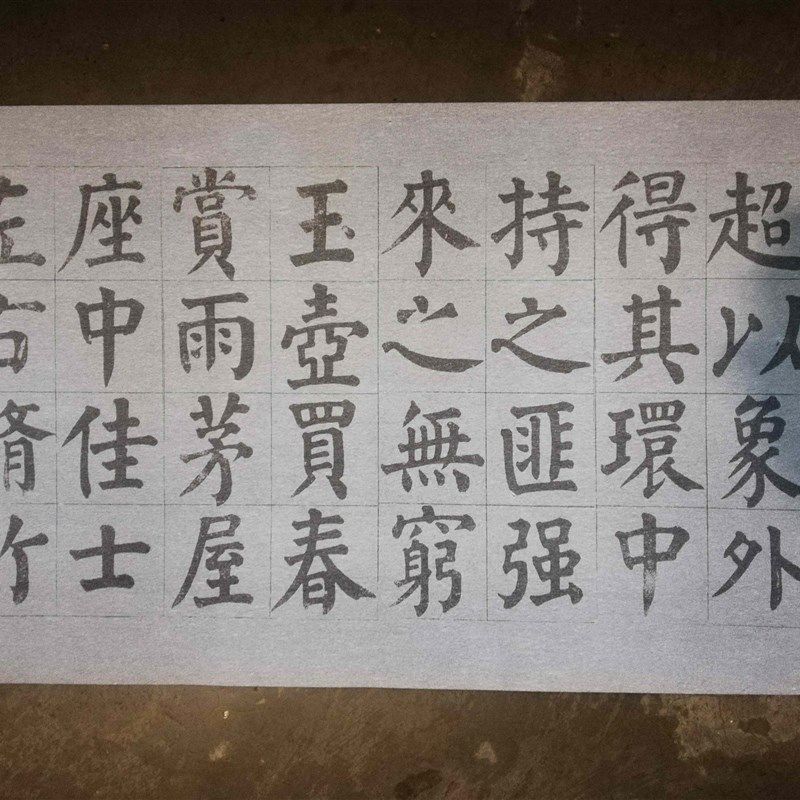 超以象外
得其環中
持之匪强
來之無窮
玉壺買春
賞雨茅屋
座中佳士
左右脩竹